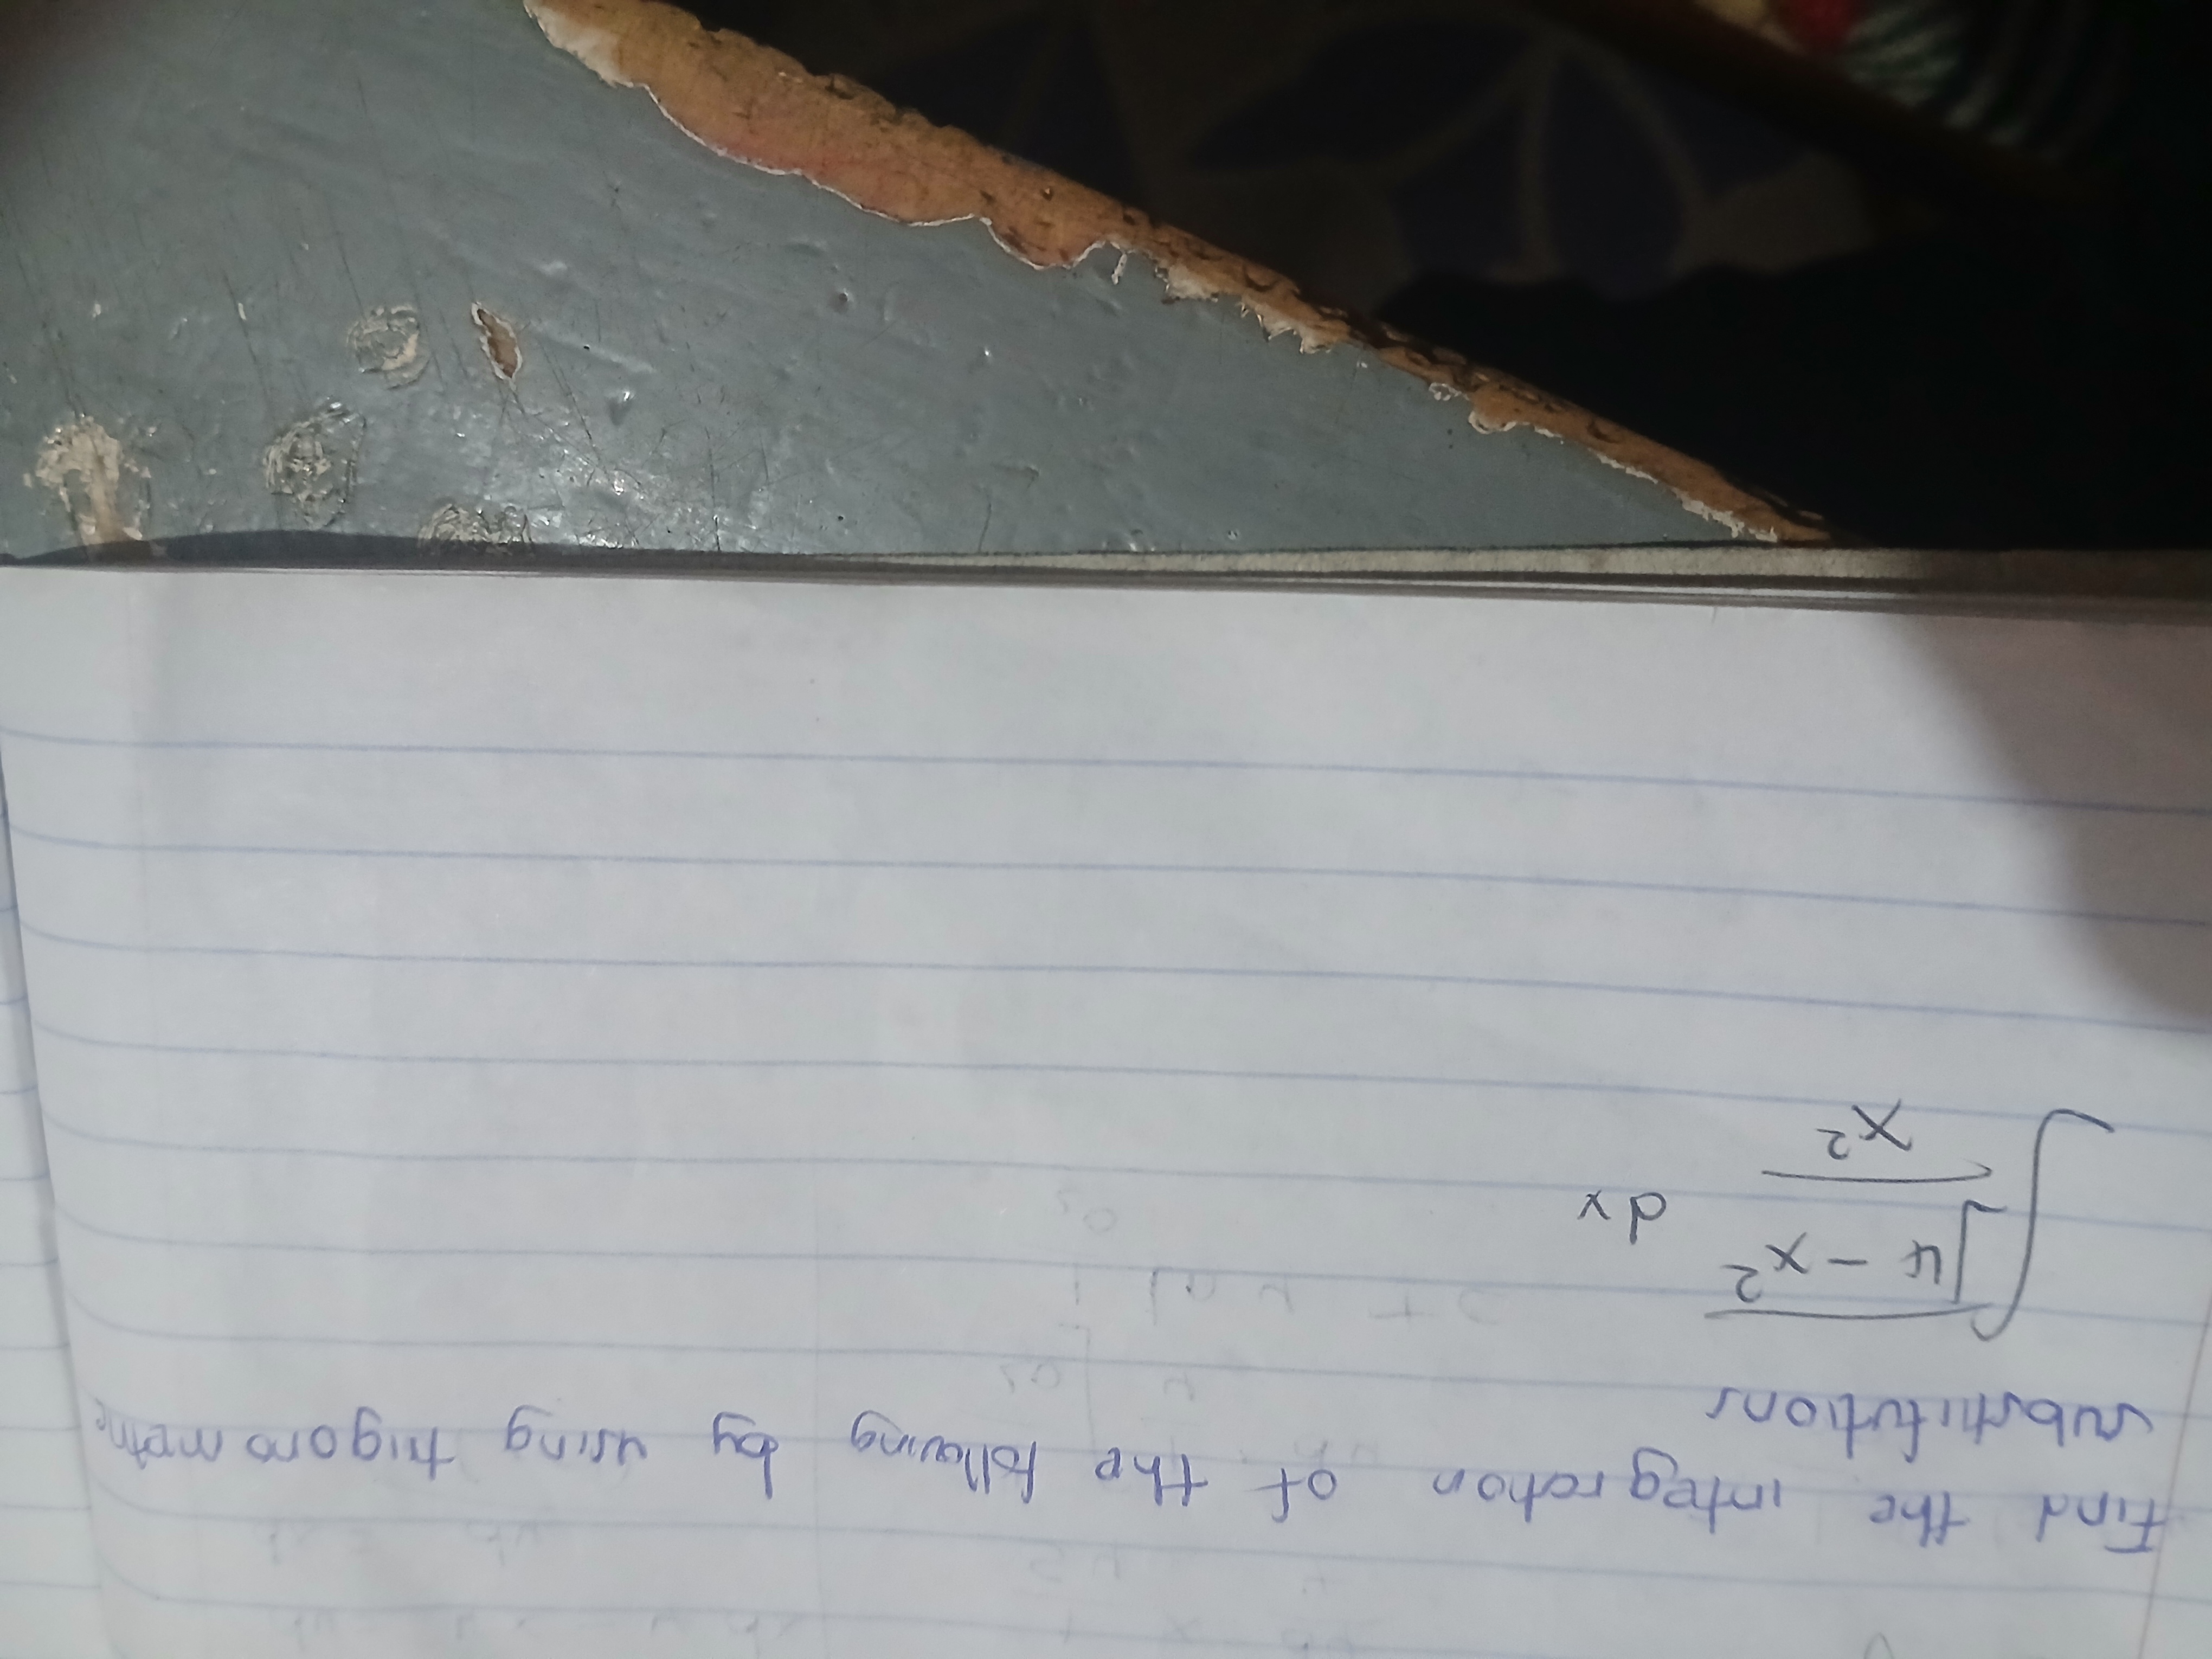 Find the integration of the following by using trigonometric
substitutions
∫ √4 - x² / x² dx